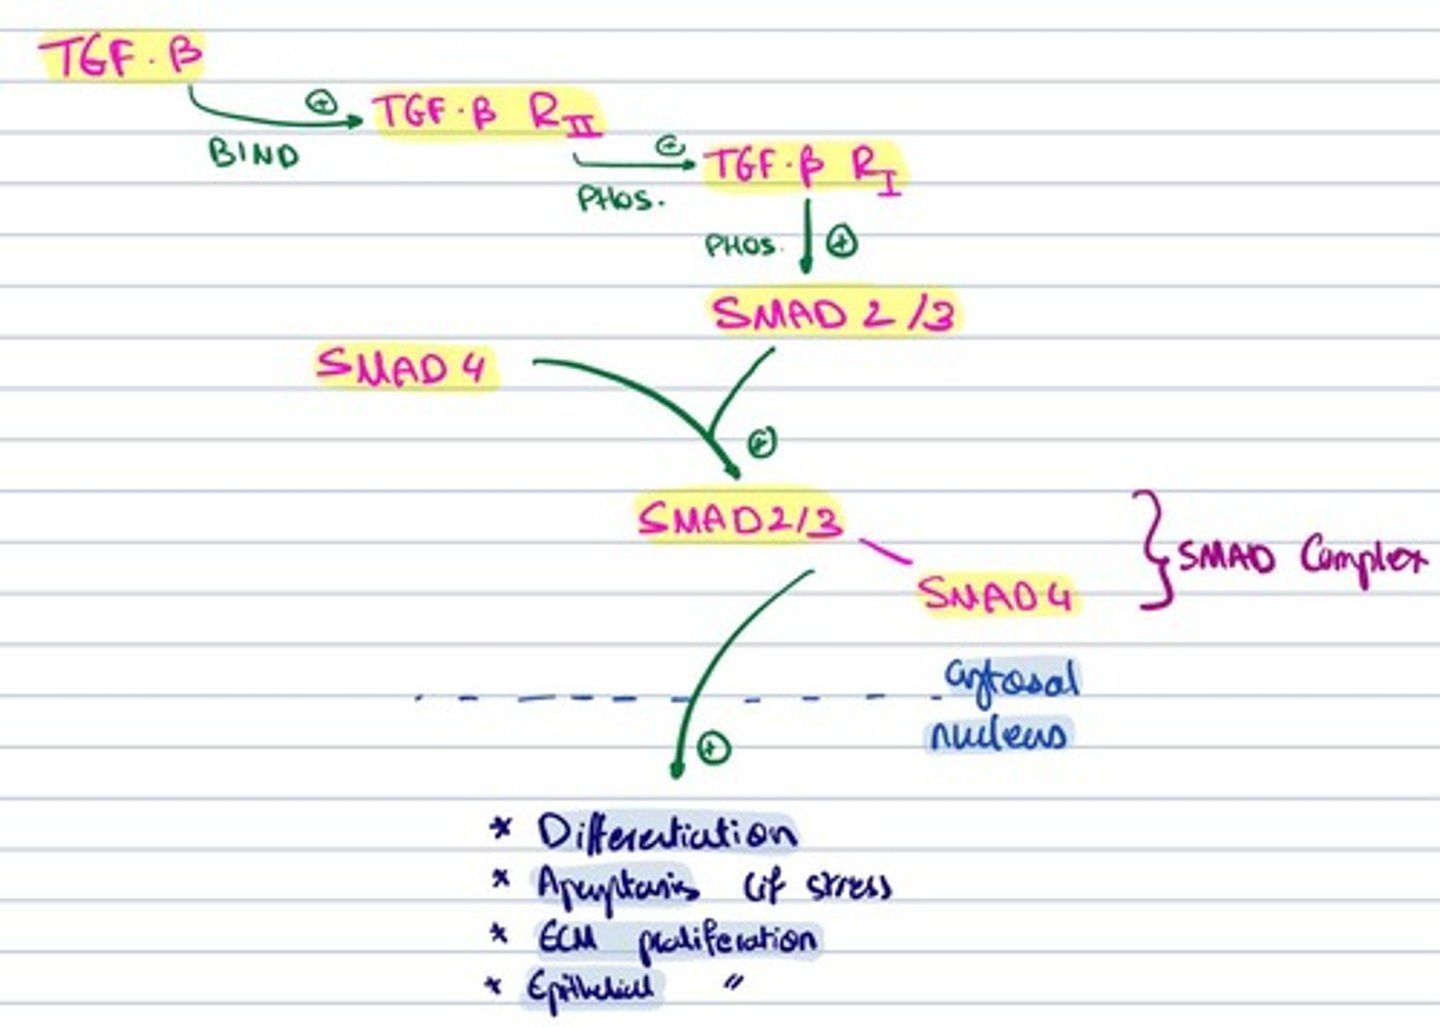 TGF-β
⊕
TGF-β R II
BIND
⊕
TGF-β R I
PHOS.
PHOS. ⊕
SMAD 2/3
SMAD 4
⊕
SMAD2/3
SMAD Complex
SMAD4
cytosol
nucleus
⊕
* Differentiation
* Apoptosis (if stress
* ECM proliferation
* Epithelial "